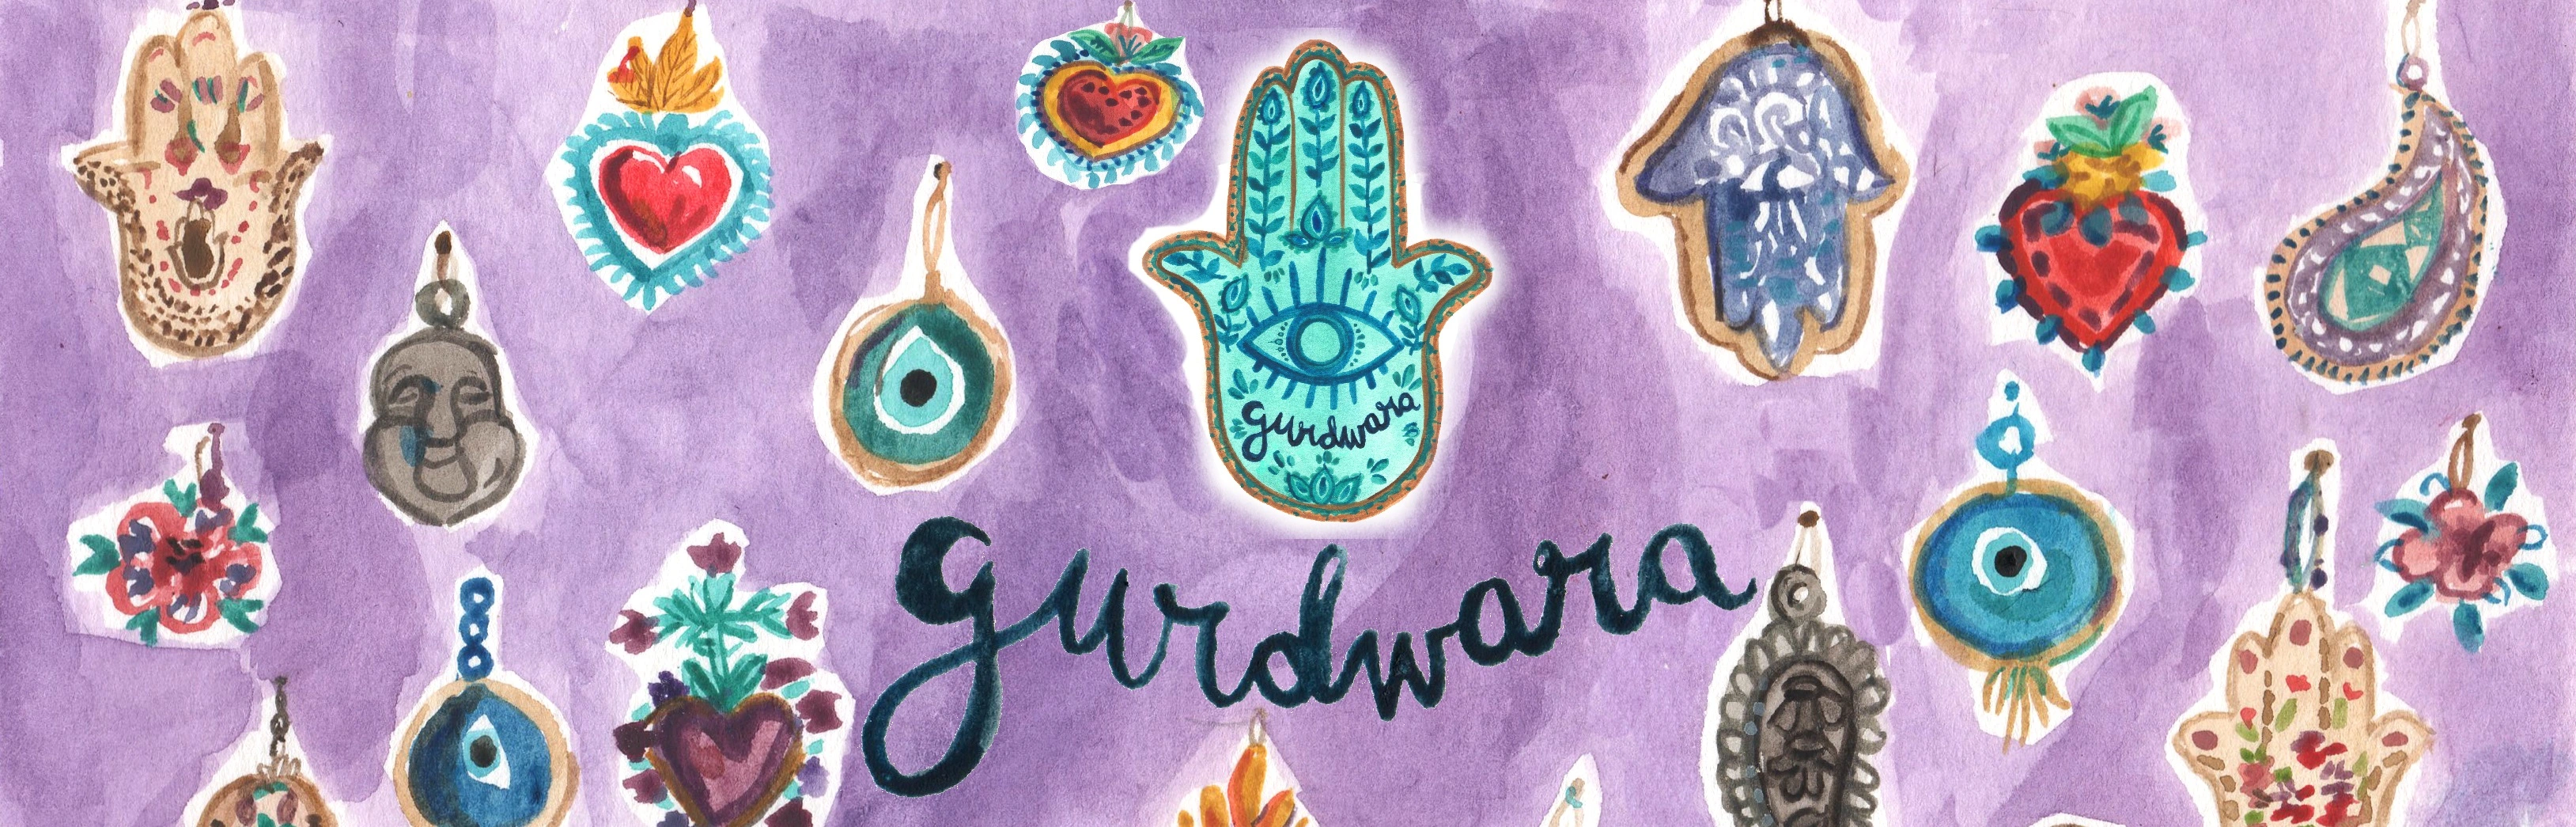 gurdwara
gurdwara